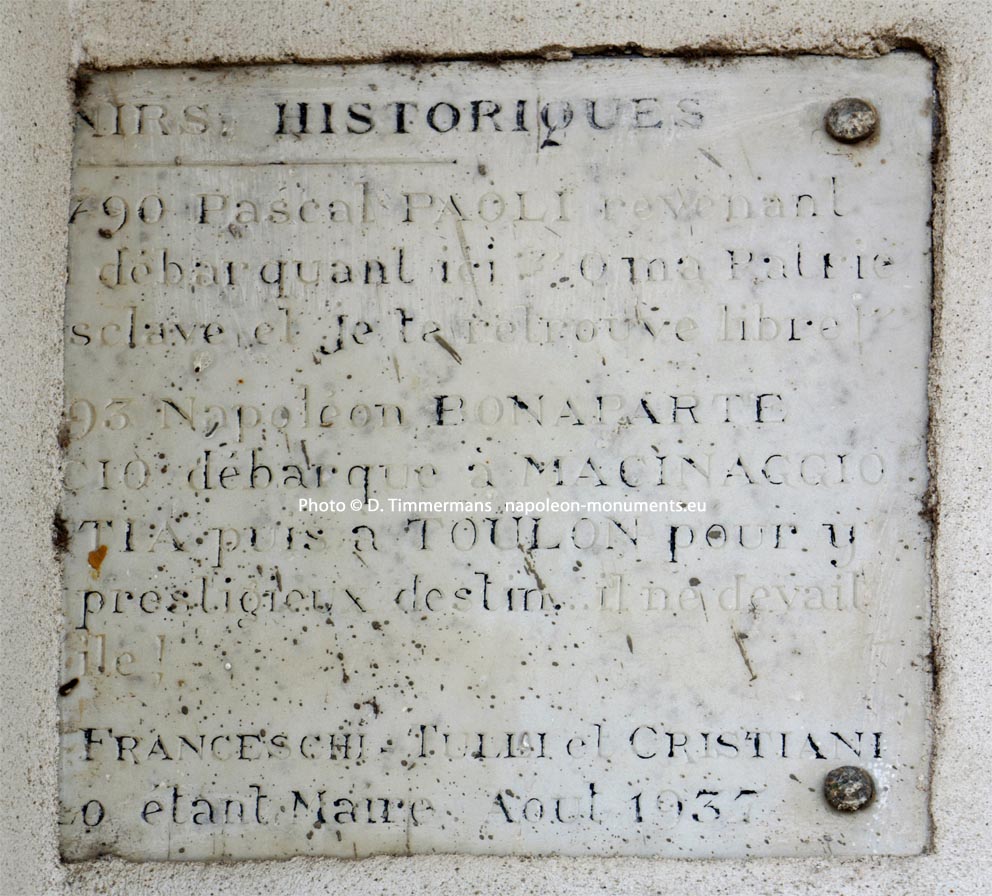 NIRS HISTORIQUES
790 Pascal PAOLI revenant
débarquant ici " O ma Patrie
sclave et je te retrouve libre!"
93 Napoléon BONAPARTE
CIO débarque à MACINAGGIO
TIA puis a TOULON pour y
prestigieux destin... il ne devait
ile!
FRANCESCHI - TULLI et CRISTIANI
étant Maire Aout 1937
Photo © D. Timmermans napoleon-monuments.eu